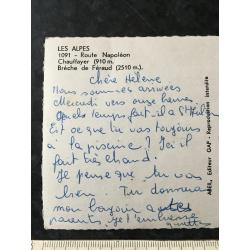 LES ALPES
1091 - Route Napoléon
Chauffayer (910 m.
Brèche de Féraud (2510 m.).
Chère Hélène
Nous sommes arrivées
Mercredi vers onze heures
Quels temps fait-il a St
Est ce que tu vas toujours
à la piscine ? Ici il
fait très chaud.
Je pense que tu vas
bien. Tu donneras
mon bonjour a tes
parents. Je t'embrasse
ABEIL, Editeur GAP - Reproduction interdite